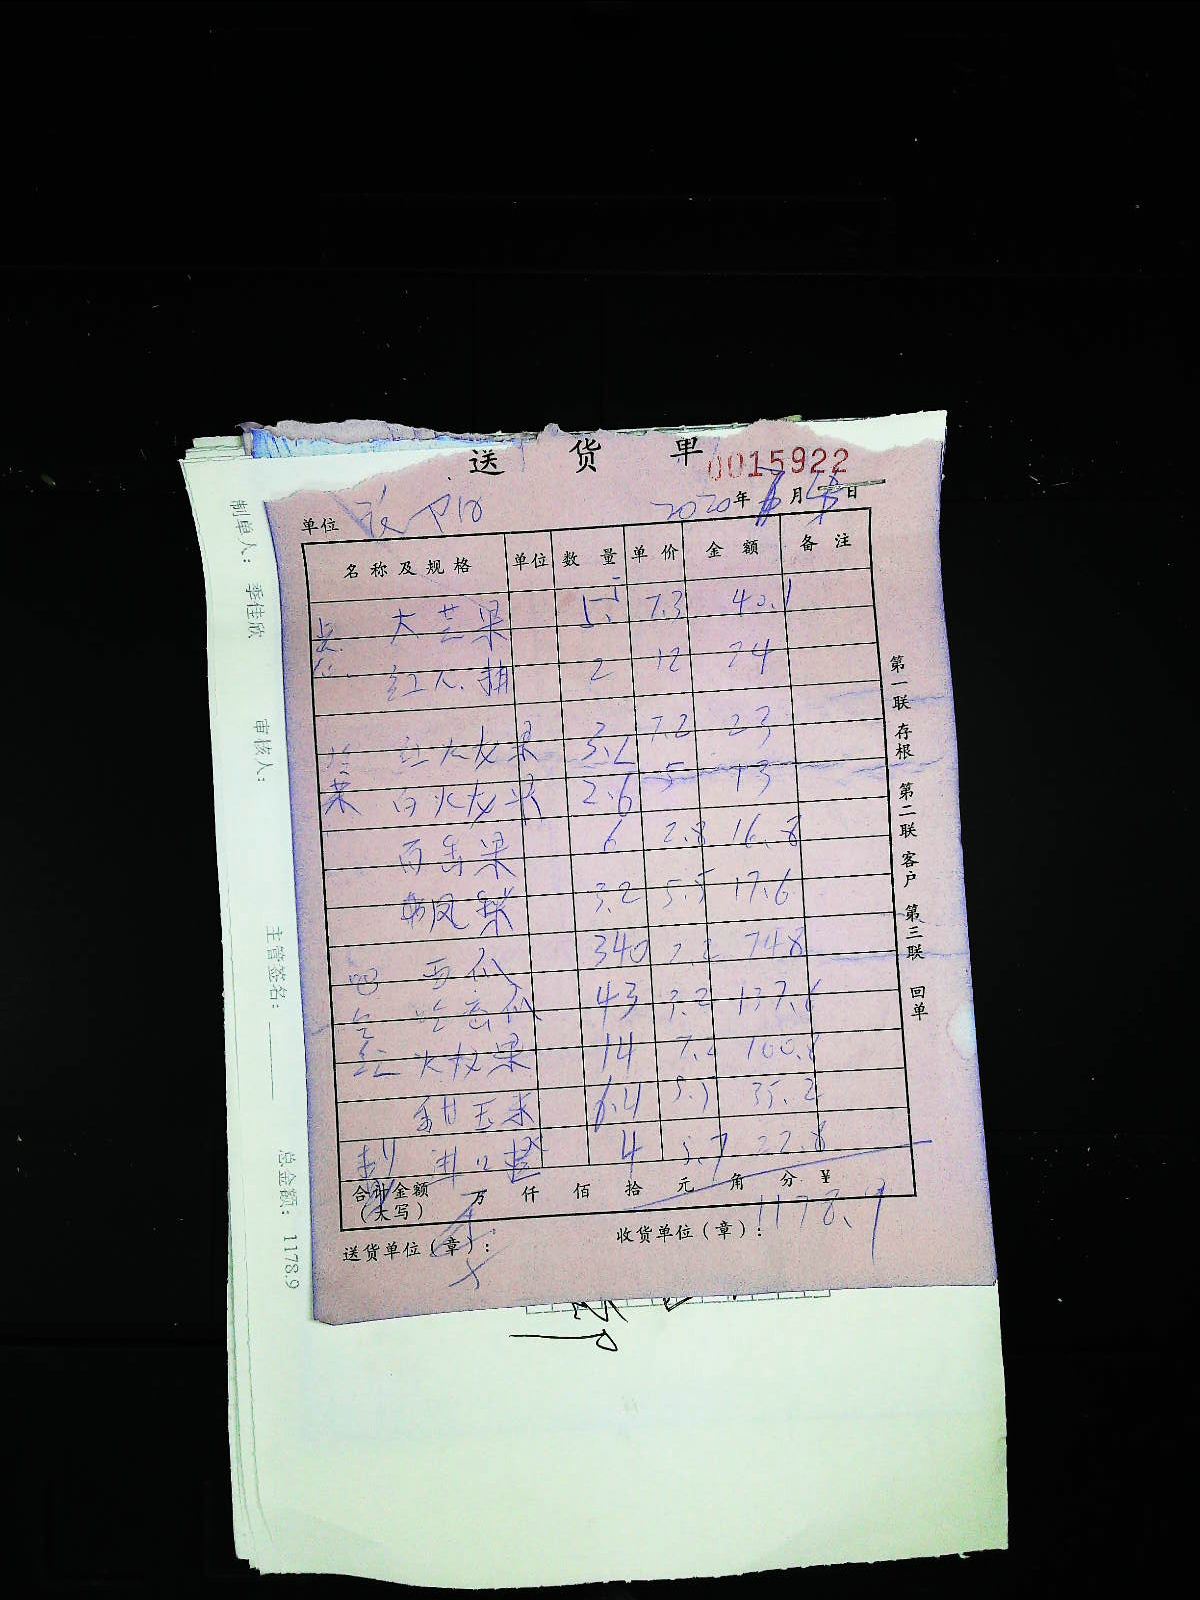 送 货 单
0015922
单位
2020年 月 日
名称及规格 单位 数量 单价 金额 备注
大芒果 5.5 7.3 40.1
红 2 12 24
红火龙果 3.2 7.2 23
白火龙果 2.6 5 13
百香果 6 2.8 16.8
凤梨 3.2 5.5 17.6
西瓜 340 2.2 748
哈密瓜 43 3.2 137.6
红火龙果 14 7.2 100.8
甜玉米 6.4 5.5 35.2
进口橙 4 5.7 22.8
合计金额(大写) 万 仟 佰 拾 元 角 分 ¥
1178.9
送货单位(章): 收货单位(章):
第一联 存根 第二联 客户 第三联 回单
制单人: 季佳欣 审核人: 主管签名: 总金额: 1178.9